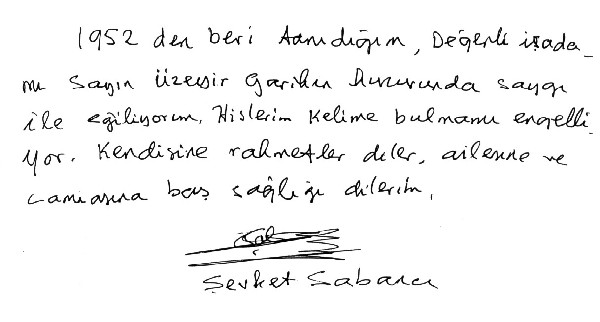 1952 den beri tanıdığım, Değerli işada-
mı Sayın Üzeyir Garihin huzurunda saygı
ile eğiliyorum. Hislerim kelime bulmamı engelli-
yor. Kendisine rahmetler diler, ailesine ve
camiasına baş sağlığı dilerim.
Şevket Sabancı